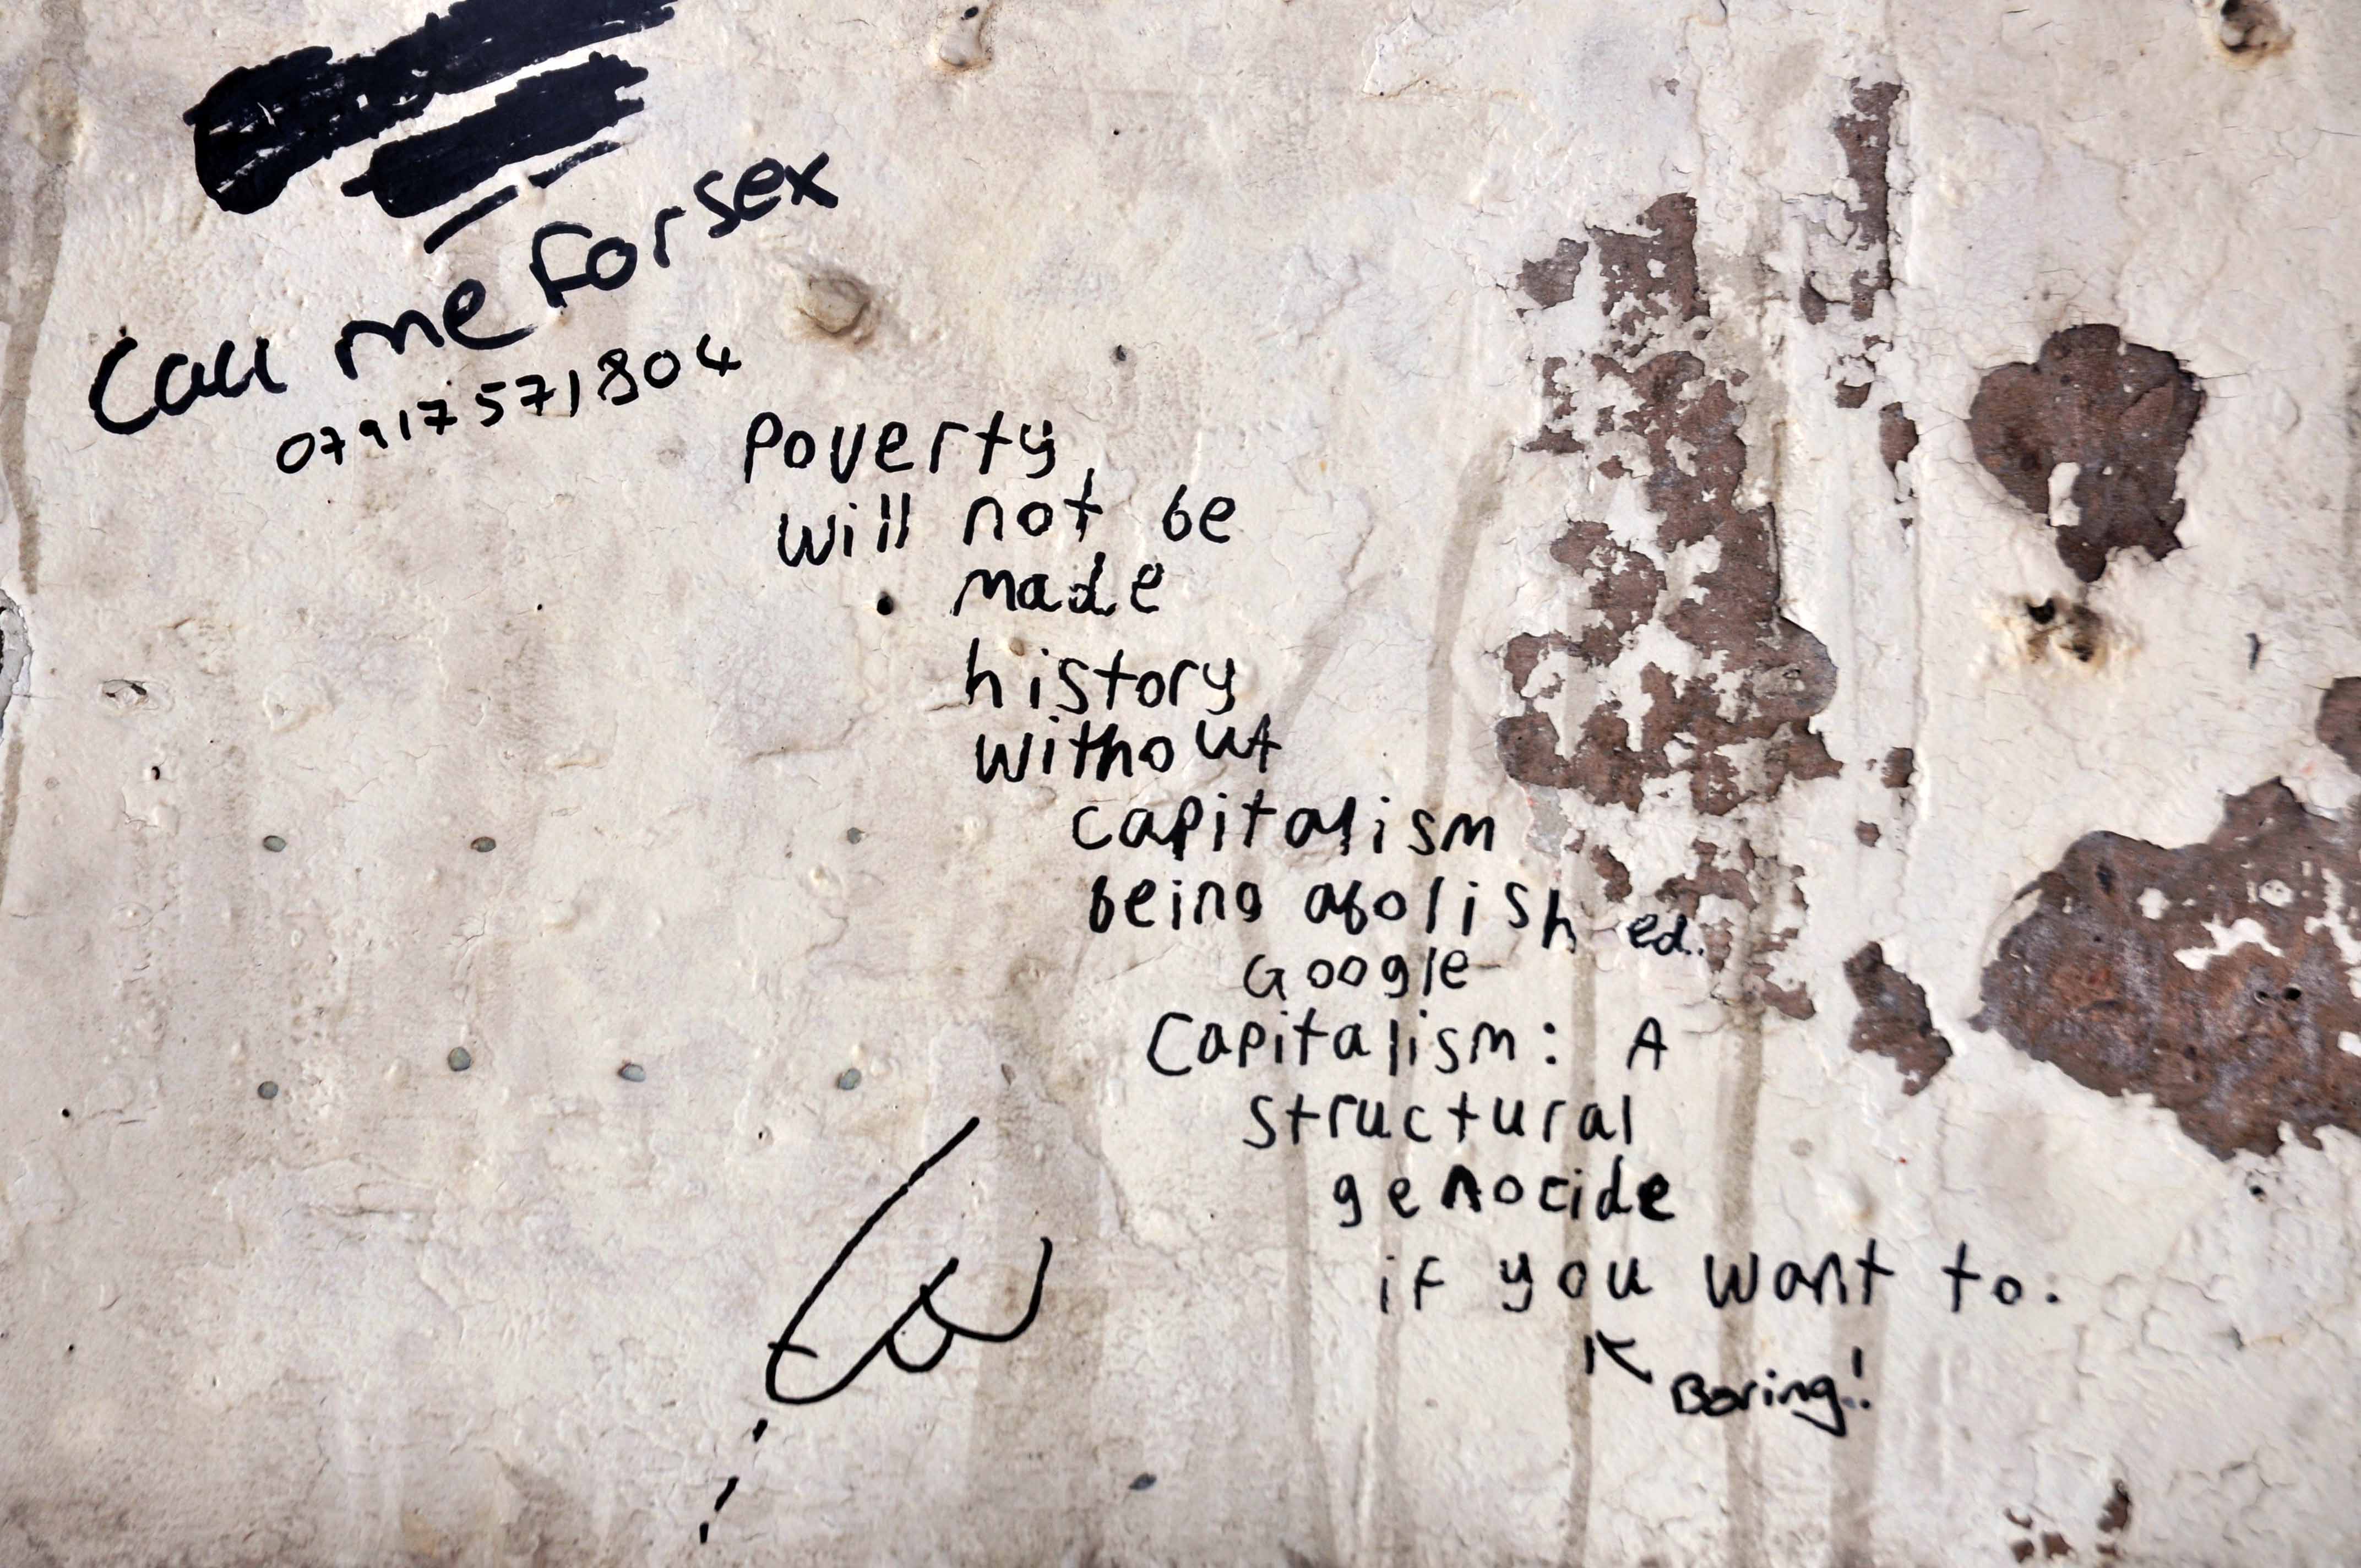 Call me for sex
07917571804
Poverty
will not be
made
history
without
capitalism
being abolished..
Google
Capitalism: A
structural
genocide
if you want to.
Boring!